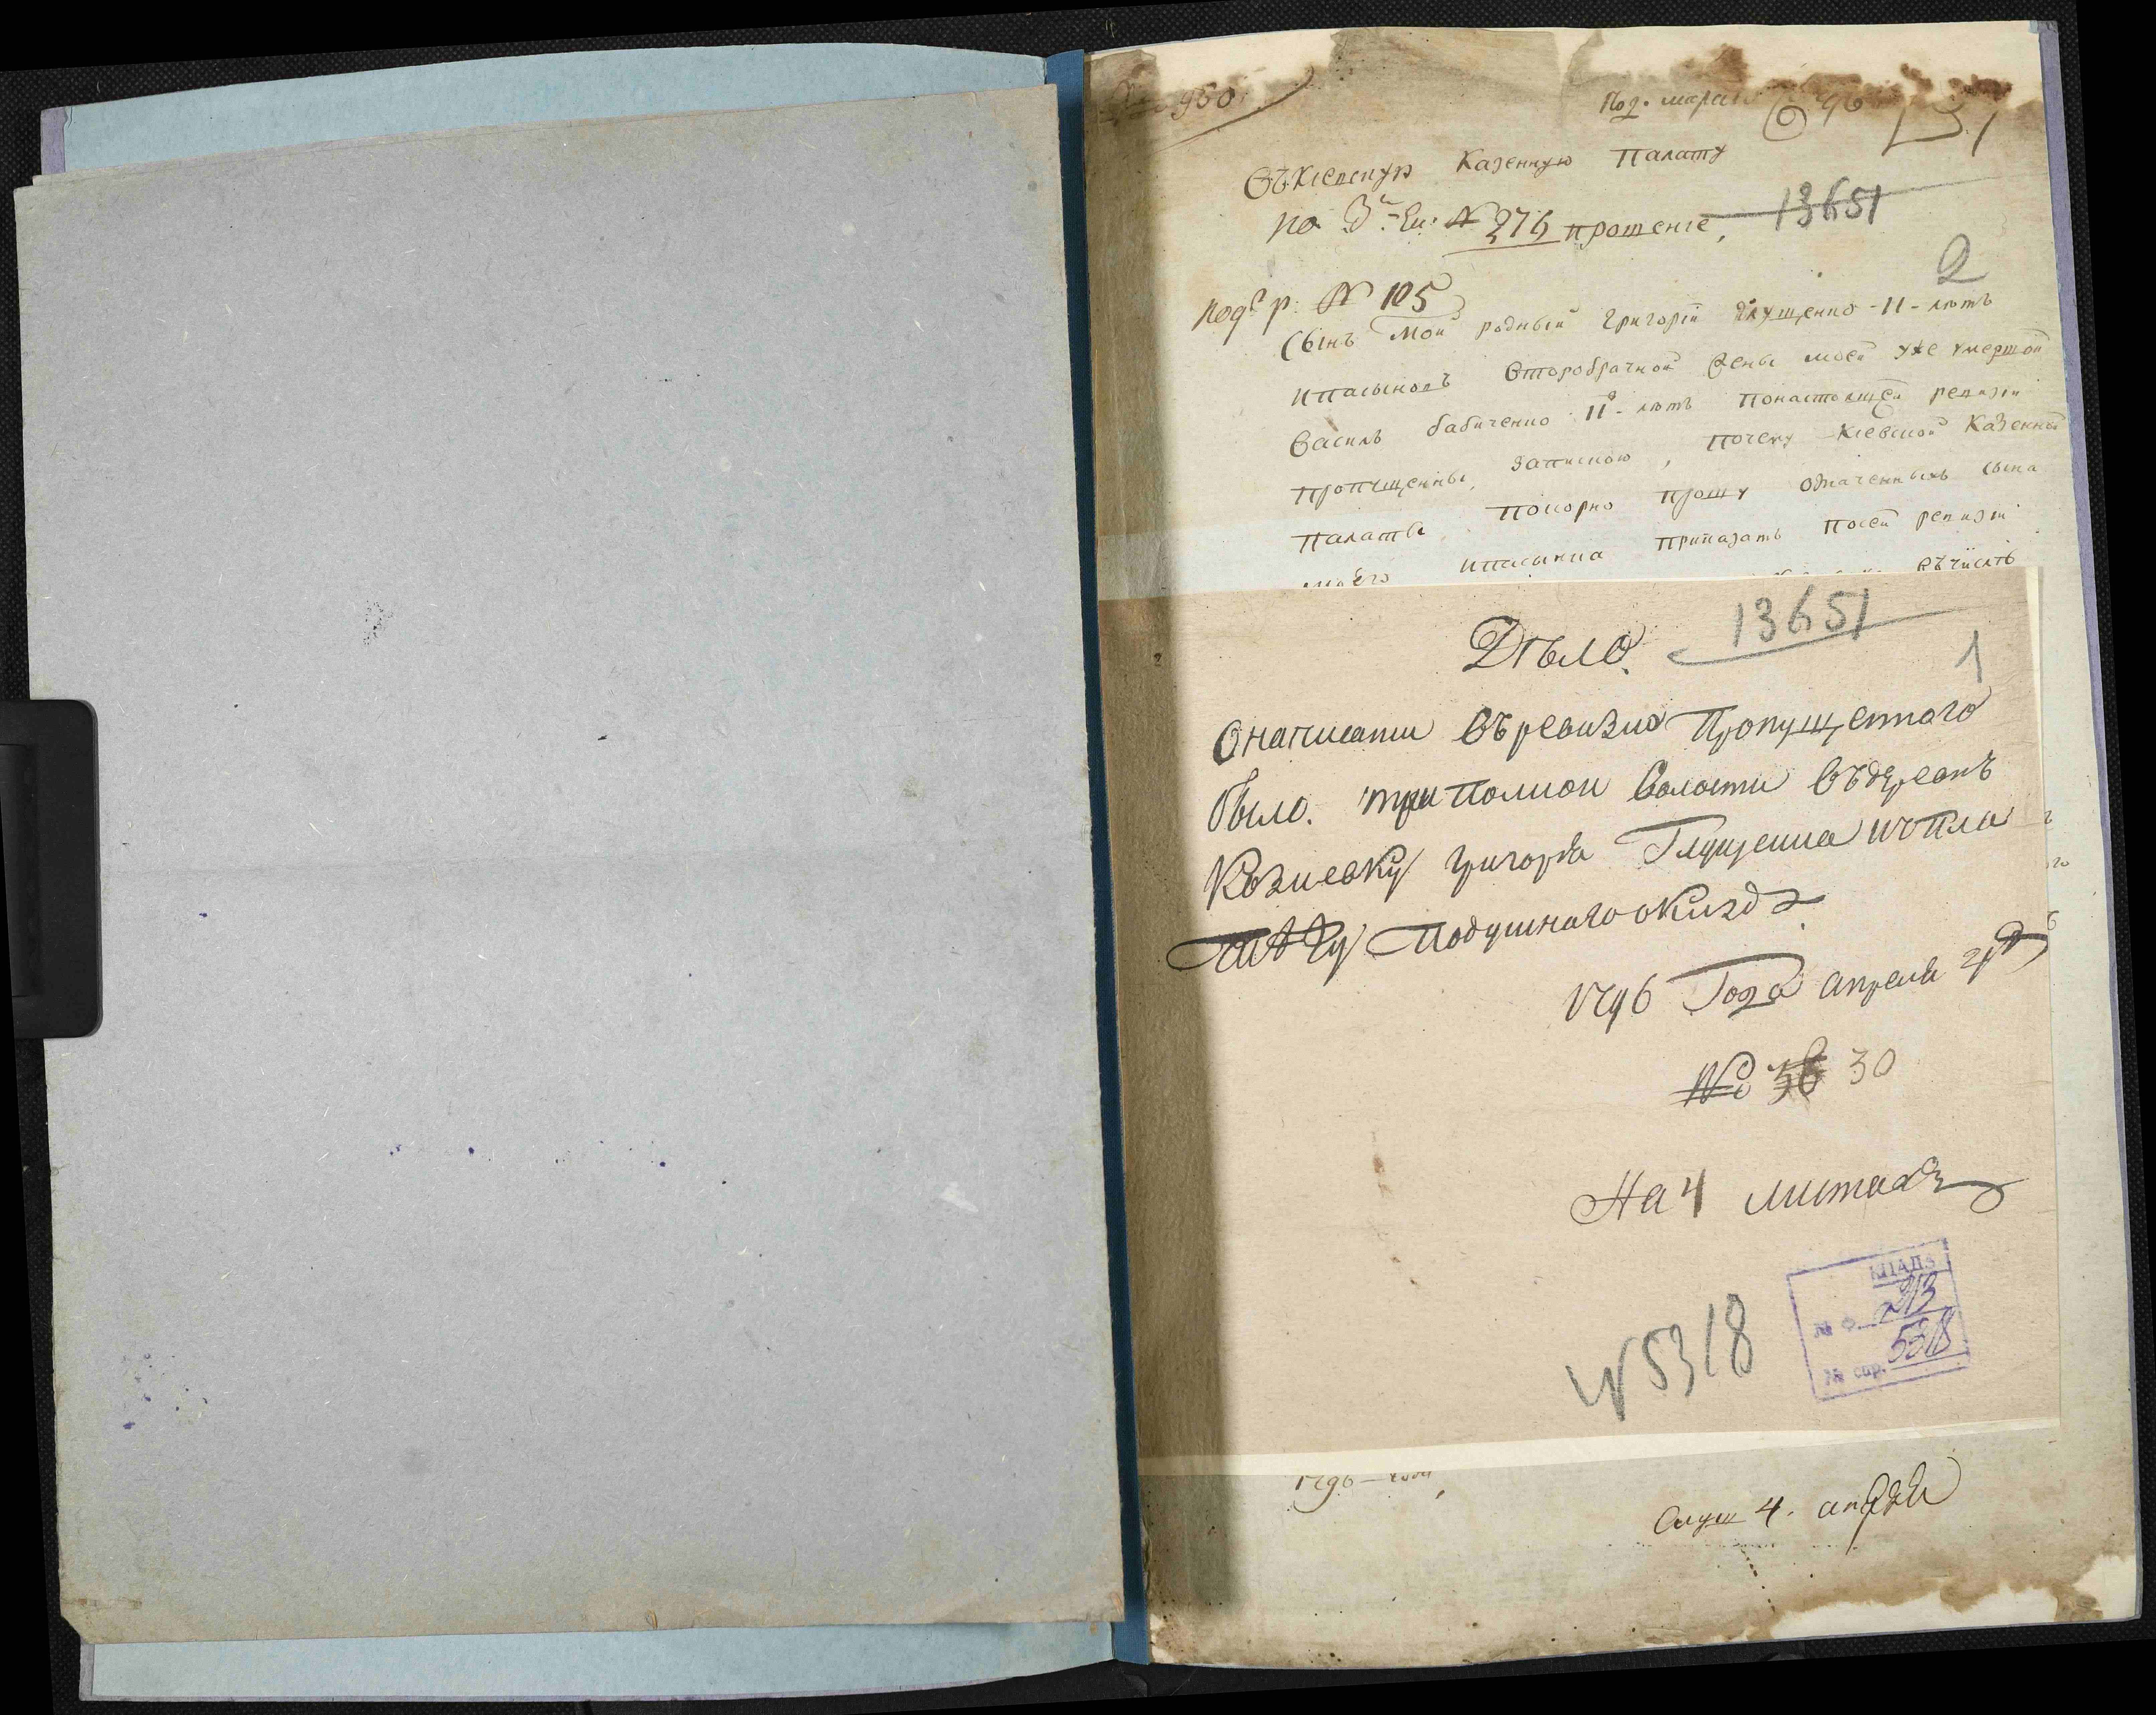 950
Под. марта 96
Въ Киевскую Казенную Палату
по З. Ек: № 276 прошение,
13651
2
подъ р: № 105
Сынъ мой родный Григорій Глущенко 11 летъ
ипасынокъ второбрачной жены моей уже умершой
василь бабиченко 11 летъ понастоящей ревизіи
пропущенны запискою, почему Киевской Казенной
Палаты покорно прошу означенныхъ сына
моего ипасынка приказать посей ревизіи
въчисль
Дѣло
13651
1
О написании въ ревизию Пропущенного
было. триполской Волости въ деревнѣ
Козиевку григорья Глущенка и о пла
тежу подушного оклада
1796 Года апреля
№ 30
На 4 листахъ
N 5318
КЦАДА
№ Ф. 213
№ спр. 5318
1796 года,
Слуш 4. апреля